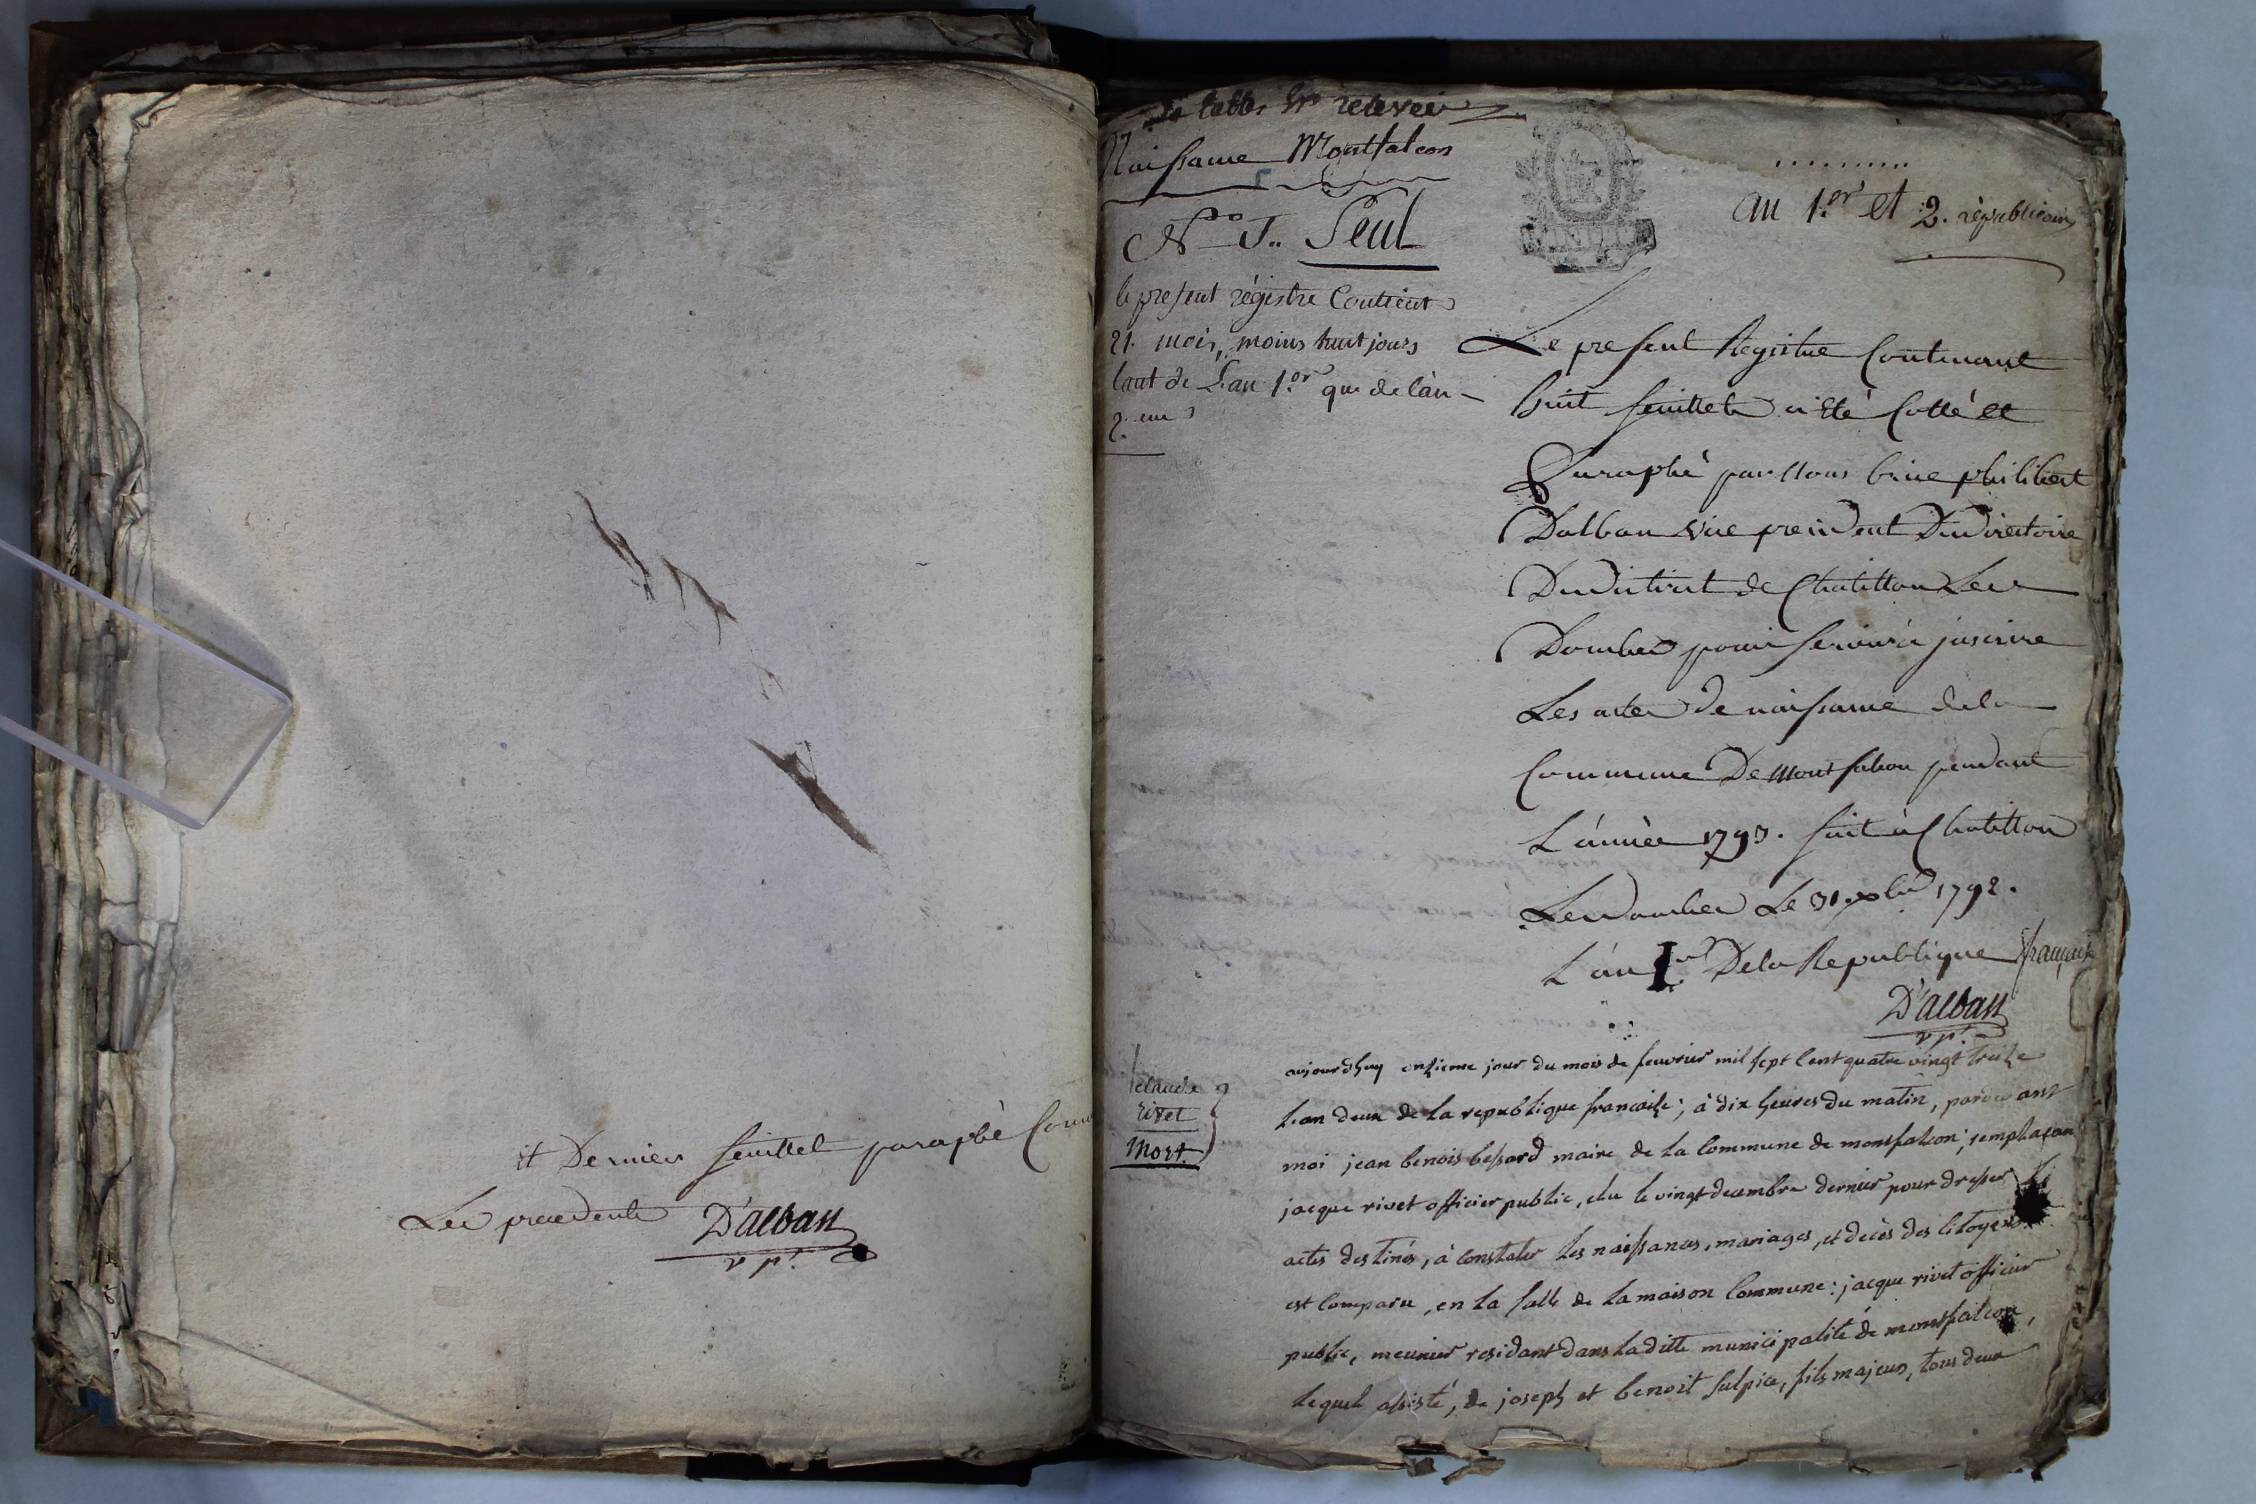 et Dernier feuillet paraphé Com
Les precedents D'alban
v. pt.
la table est relevée
Naissance Montfalcon
N.º J.. Seul
le present régistre Contient
21. mois, moins huit jours
tant de L'an 1.er que de l'an
2.eme
an 1.er et 2. républicain
Le present Registre Contenant
huit feuillets a été Cotté et
Paraphé par Nous brice philibert
Dalban vice president Du Directoire
Du District de Chatillon Les
Dombes pour servir à inscrire
Les actes de naissance de la
Commune De Montfalcon pendant
L'année 1793. fait à Chatillon
Les Dombes Le 31 xbre 1792.
L'an I.er De la Republique française
D'alban
v. pt.
claude
rivet
Mort.
aujourdhuy onzieme jour du mois de feuvrier mil sept Cent quatre vingt treize
L'an deux de la republique francaise; à dix heures du matin, pardevant
moi jean benois bessard maire de la Commune de monsfalcon; remplaçan
jacque rivet officier public, elu le vingt decembre dernier pour dresser les
actes destinés, à constater les naissances, mariages, et decès des Citoyens
est Comparu, en la salle de la maison Commune: jacque rivet officier
public, meunier residant dans laditte municipalité de monsfalcon,
lequel assisté, de joseph et benoit sulpice, fils majeurs, tous deux